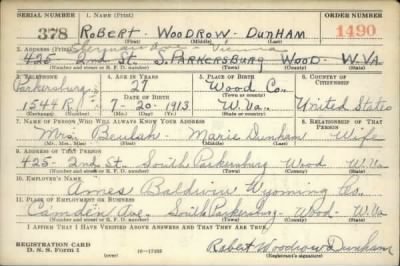 SERIAL NUMBER 1. NAME (Print) ORDER NUMBER
378 ROBERT - WOODROW DUNHAM 1490
(First) (Middle) (Last)
2. ADDRESS (Print)
Sherman Ave - Vienna
425 2nd St. S. PARKERSBURG WOOD - W. VA
(Number and street or R. F. D. number) (Town) (County) (State)
3. TELEPHONE 4. AGE IN YEARS 5. PLACE OF BIRTH 6. COUNTRY OF CITIZENSHIP
Parkersburg 27 Wood Co.
DATE OF BIRTH
1544 R 7-20-1913 W. Va. United States
(Exchange) (Number) (Mo.) (Day) (Yr.) (State or country)
7. NAME OF PERSON WHO WILL ALWAYS KNOW YOUR ADDRESS 8. RELATIONSHIP OF THAT PERSON
Mrs. Beulah - Marie Dunham Wife
(Mr., Mrs., Miss) (First) (Middle) (Last)
9. ADDRESS OF THAT PERSON
425 - 2nd St. South Parkersburg Wood W. Va
(Number and street or R. F. D. number) (Town) (County) (State)
10. EMPLOYER'S NAME
Ames Baldwin Wyoming Co.
11. PLACE OF EMPLOYMENT OR BUSINESS
Camden Ave. South Parkersburg - Wood - W. Va
(Number and street or R. F. D. number) (Town) (County) (State)
I AFFIRM THAT I HAVE VERIFIED ABOVE ANSWERS AND THAT THEY ARE TRUE.
REGISTRATION CARD
D. S. S. Form 1 (over) Robert Woodrow Dunham
(Registrant's signature)